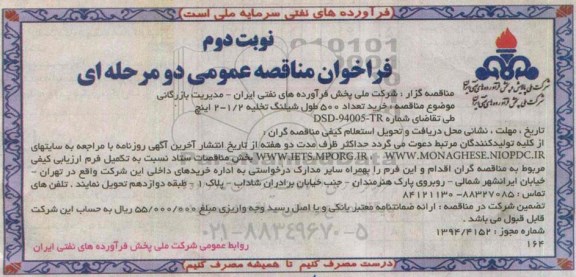 (فرآورده های نفتی سرمایه ملی است)
نوبت دوم
فراخوان مناقصه عمومی دو مرحله ای
شرکت ملی پخش فرآورده های نفتی ایران
مناقصه گزار : شرکت ملی پخش فرآورده های نفتی ایران - مدیریت بازرگانی
موضوع مناقصه : خرید تعداد ۵۰۰ طول شیلنگ تخلیه ۱/۲-۲ اینچ
طی تقاضای شماره DSD-94005-TR
تاریخ ، مهلت ، نشانی محل دریافت و تحویل استعلام کیفی مناقصه گران :
از کلیه تولیدکنندگان مرتبط دعوت می گردد حداکثر ظرف مدت دو هفته از تاریخ انتشار آخرین آگهی روزنامه با مراجعه به سایتهای
WWW.MONAGHESE.NIOPDC.IR و WWW.IETS.MPORG.IR بخش مناقصات ستاد نسبت به تکمیل فرم ارزیابی کیفی
مربوط به مناقصه گران اقدام و این فرم را بهمراه سایر مدارک درخواستی به اداره خریدهای داخلی این شرکت واقع در تهران -
خیابان ایرانشهر شمالی - روبروی پارک هنرمندان - جنب خیابان برادران شاداب - پلاک ۱ - طبقه دوازدهم تحویل نمایند . تلفن های
تماس : ۸۸۳۲۷۰۸۵ - ۸۴۱۲۱۱۳۰
تضمین شرکت در مناقصه : ارائه ضمانتنامه معتبر بانکی و یا اصل رسید وجه واریزی مبلغ ۵۵/۰۰۰/۰۰۰ ریال به حساب این شرکت
قابل قبول می باشد .
شماره مجوز : ۱۳۹۴/۴۱۵۲
۰۲۱-۸۸۳۴۹۶۷۰-۵
۱۶۴
روابط عمومی شرکت ملی پخش فرآورده های نفتی ایران
(درست مصرف کنیم تا همیشه مصرف کنیم)